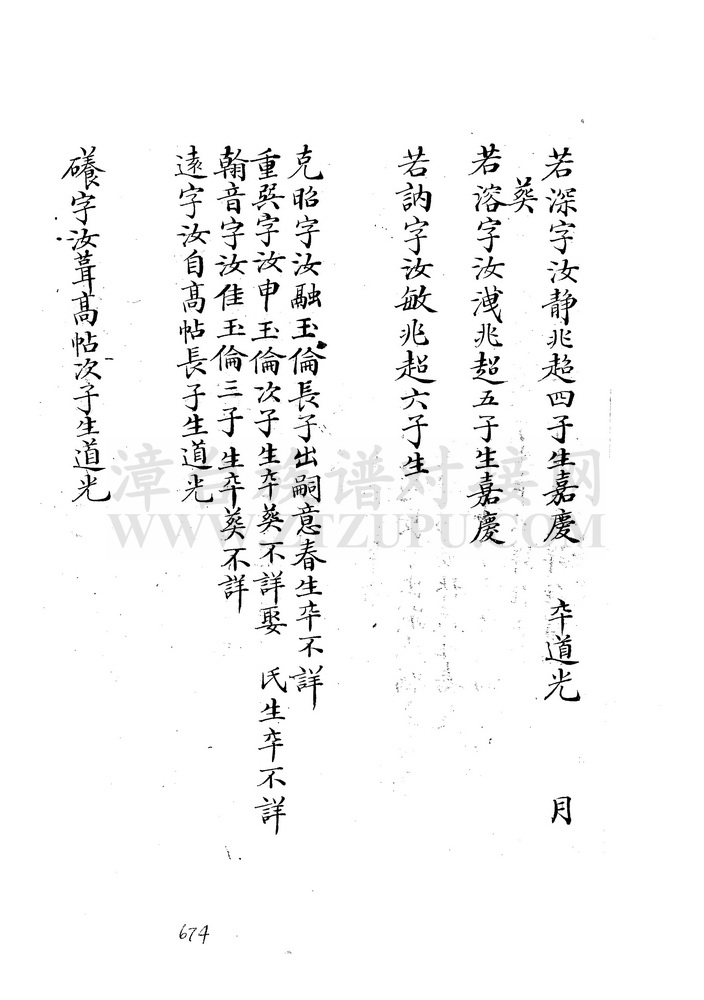 若深字汝静兆超四子生嘉慶 卒道光 月
葵
若溶字汝洩兆超五子生嘉慶
若訥字汝敏兆超六子生
克昭字汝融玉倫長子出嗣意春生卒不詳
重巽字汝申玉倫次子生卒葵不詳娶 氏生卒不詳
翰音字汝佳玉倫三子生卒葵不詳
遠字汝自髙帖長子生道光
礒字汝葺髙帖次子生道光
漳台族谱对接网
WWW.ZTZUPU.COM
674